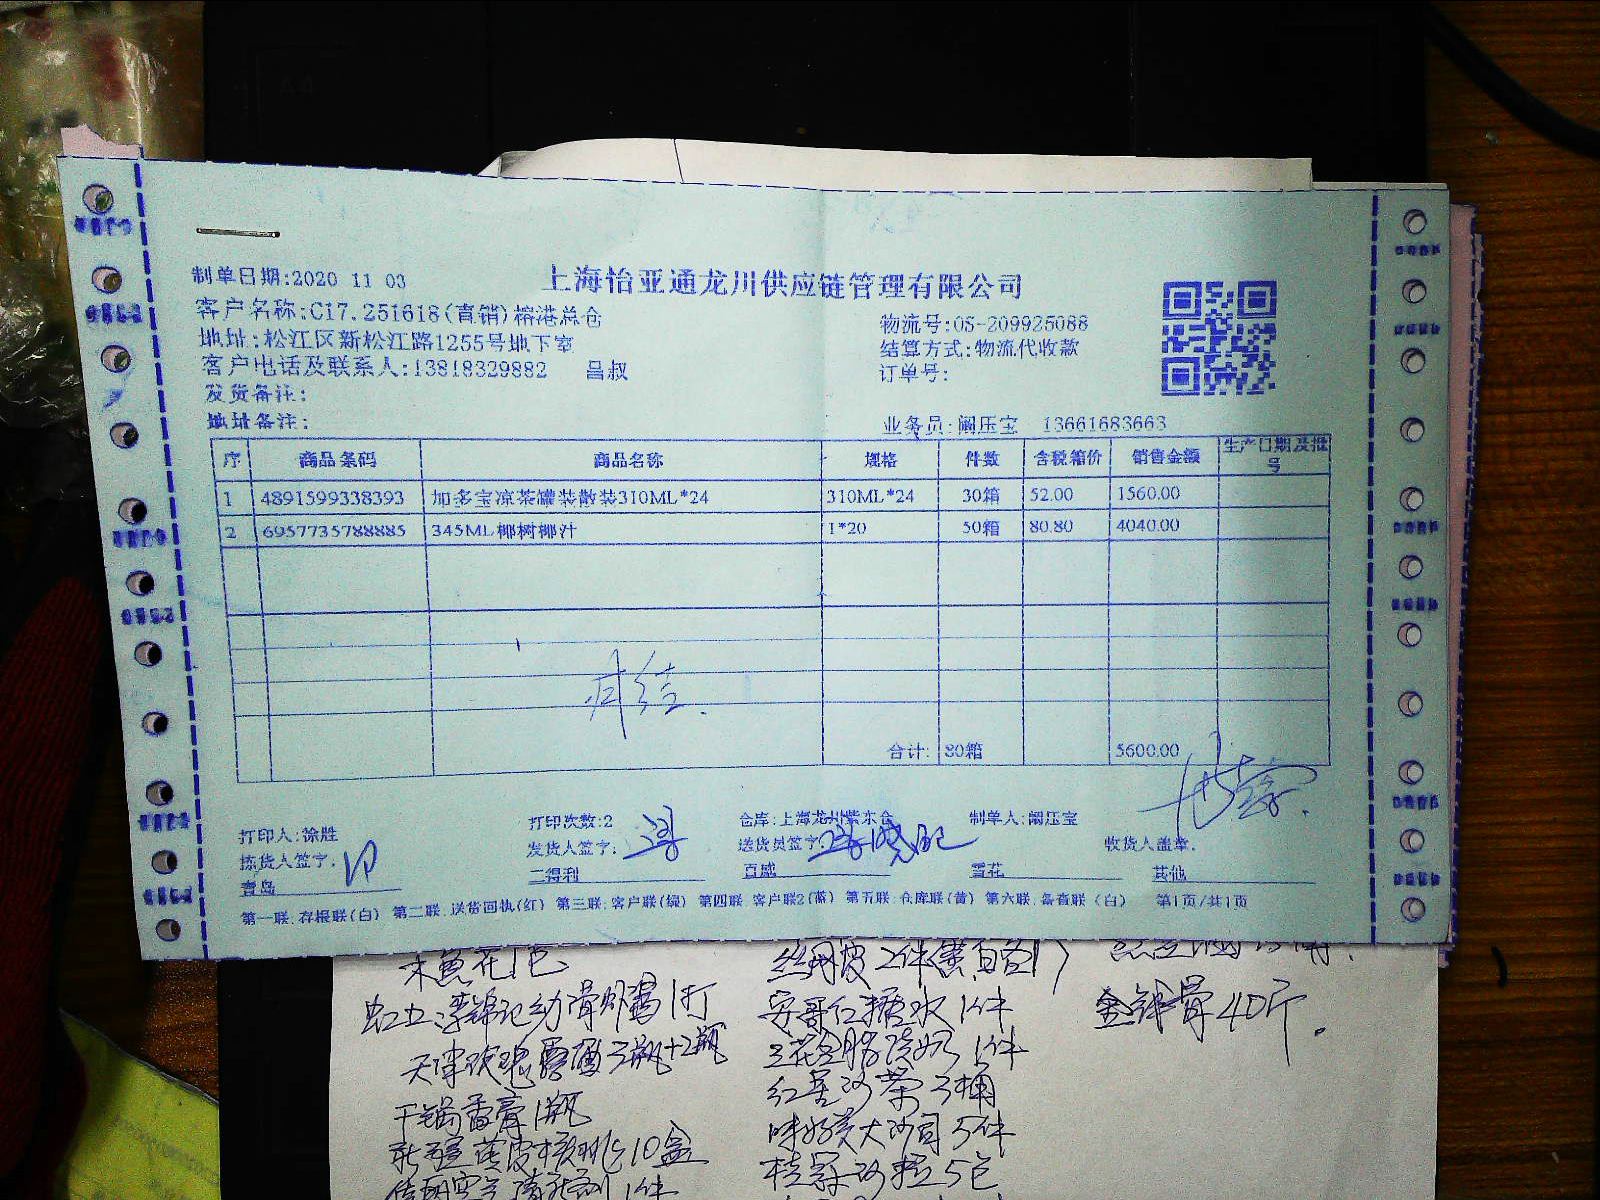 上海怡亚通龙川供应链管理有限公司
制单日期:2020 11 03
客户名称:C17.251618(直销)榕港总仓
物流号:05-209925088
地址:松江区新松江路1255号地下室
结算方式:物流代收款
客户电话及联系人:13818329882 吕叔
订单号:
发货备注:
地址备注:
业务员:阚压宝 13661683663
序 商品条码 商品名称 规格 件数 含税箱价 销售金额 生产日期及批号
1 4891599338393 加多宝凉茶罐装散装310ML*24 310ML*24 30箱 52.00 1560.00
2 6957735788885 345ML椰树椰汁 1*20 50箱 80.80 4040.00
月结.
合计: 80箱 5600.00
打印人:徐胜 打印次数:2 仓库:上海龙川紫东仓 制单人:阚压宝
拣货人签字: 发货人签字: 送货员签字: 收货人盖章:
青岛 三得利 百威 雪花 其他
第一联:存根联(白) 第二联:送货回执(红) 第三联:客户联(绿) 第四联:客户联2(蓝) 第五联:仓库联(黄) 第六联:备查联(白) 第1页/共1页
木鱼花1包
李锦记幼滑虾酱1打
天津玫瑰露酒3瓶+2瓶
干锅香膏1瓶
10盒
1件
丝网皮2件
安哥仁糖水1件
三花全脂淡奶1件
3桶
味好美大沙司5件
桂冠沙拉5包
金钱骨40斤.